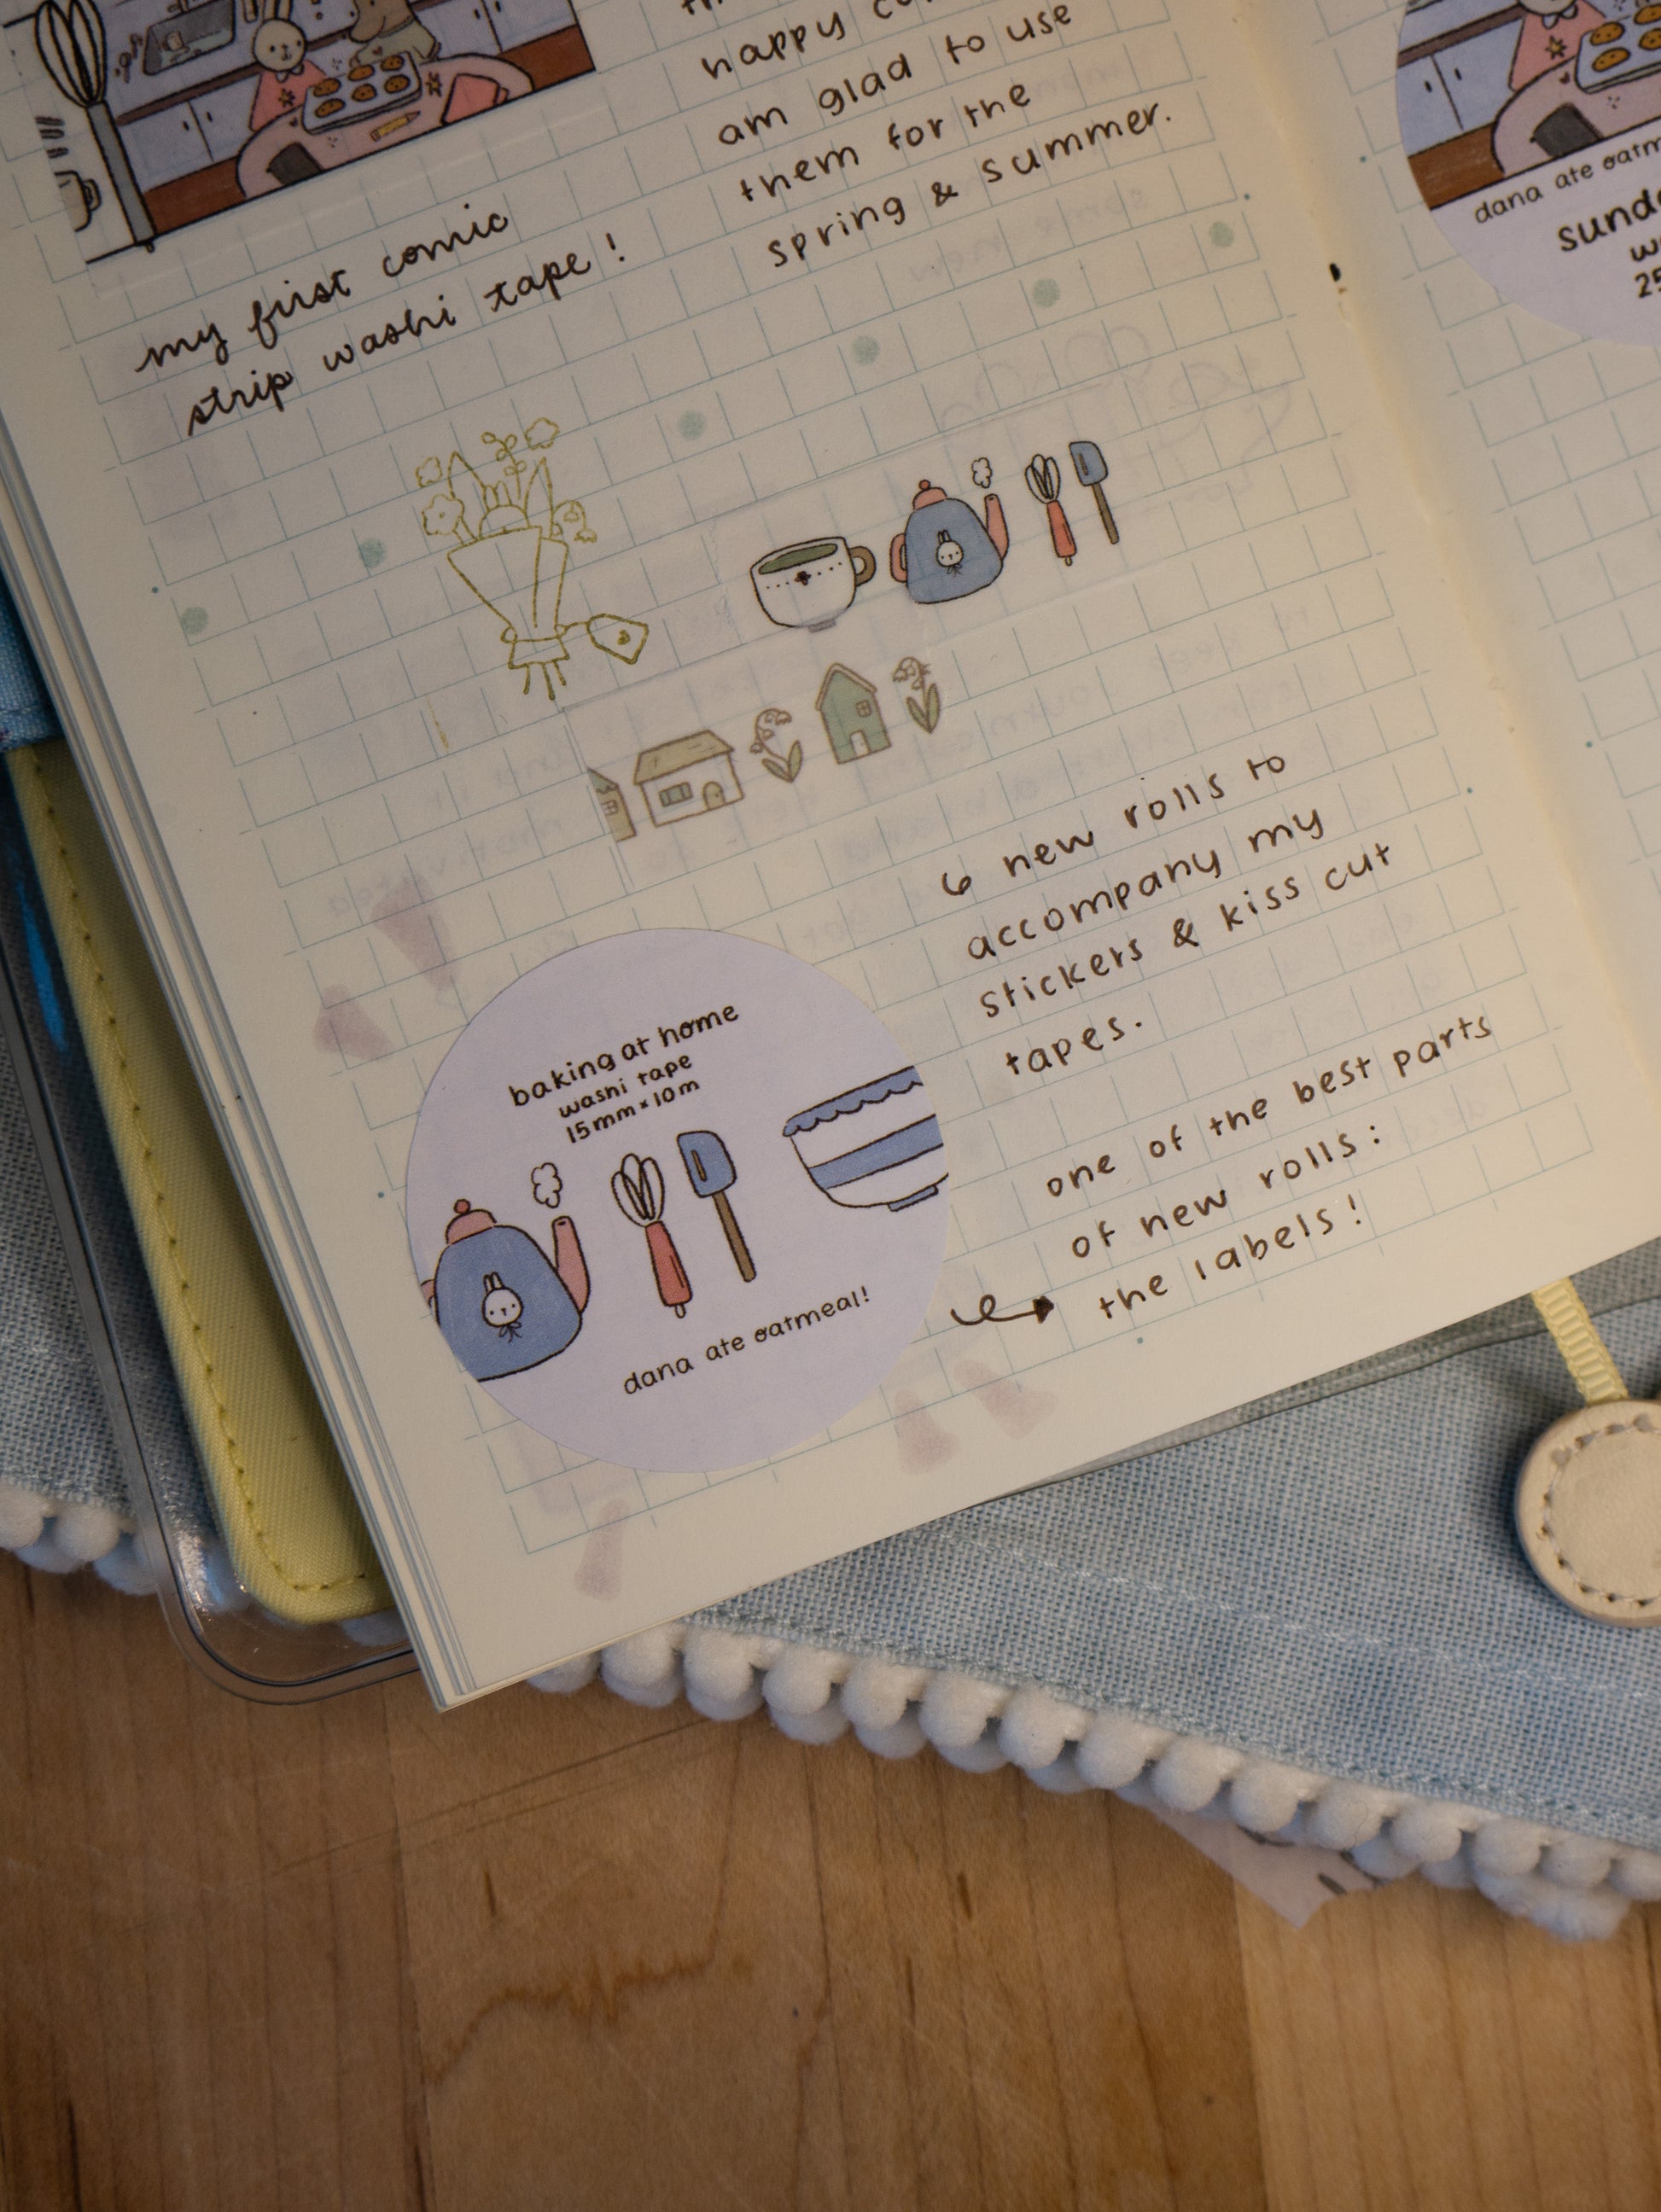 happy
am glad to use
them for the
spring & summer.
my first comic
strip washi tape!
6 new rolls to
accompany my
stickers & kiss cut
tapes.
one of the best parts
of new rolls:
the labels!
baking at home
washi tape
15mm × 10m
dana ate oatmeal!
dana ate